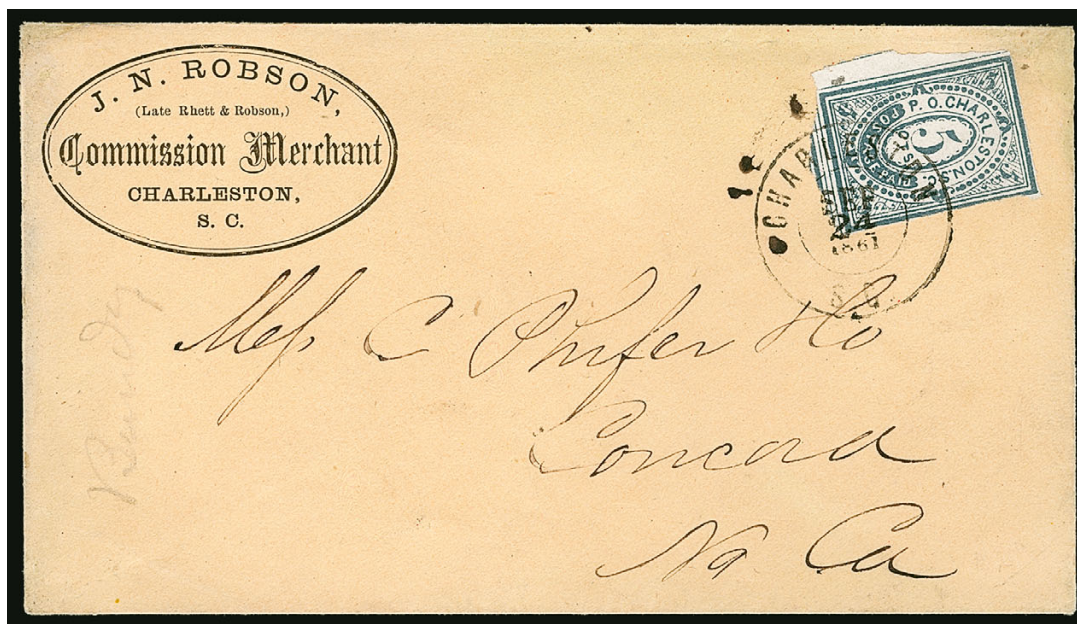 J. N. ROBSON,
(Late Rhett & Robson,)
Commission Merchant
CHARLESTON,
S. C.
P. O. CHARLESTON, S. C.
POSTAGE
5
CHARLESTON
SEP
24
1861
S C
Mess C Phifer &Co
Concord
No Ca